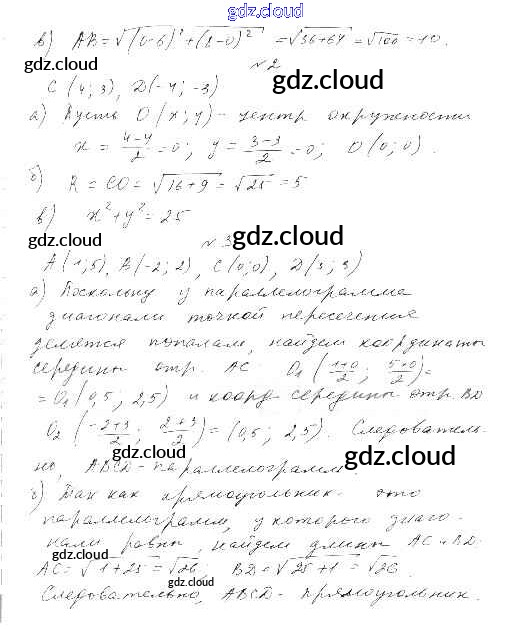 gdz.cloud
в) AB = √(0-6)² + (8-0)² = √36+64 = √100 = 10.
gdz.cloud № 2 gdz.cloud
C (4; 3), D(-4; -3)
а) Пусть O (x; y) - центр окружности
x = (4-4)/2 = 0; y = (3-3)/2 = 0; O (0; 0).
б) R = CO = √16+9 = √25 = 5
в) x² + y² = 25
gdz.cloud № 3 gdz.cloud
A (1; 5), B(-2; 2), C (0; 0), D(3; 3)
а) Поскольку у параллелограмма
диагонали точкой пересечения
делятся пополам, найдем координаты
середины отр. AC: O₁ ((1+0)/2; (5+0)/2) =
= O₁ (0,5; 2,5) и коорд. середины отр. BD
O₂ ((-2+3)/2; (2+3)/2) = (0,5; 2,5). Следователь-
но, ABCD - параллелограмм.
gdz.cloud gdz.cloud
б) Так как прямоугольник - это
параллелограмм, у которого диаго-
нали равны, найдем длины AC и BD:
gdz.cloud gdz.cloud
AC = √1+25 = √26; BD = √25+1 = √26
gdz.cloud
Следовательно, ABCD - прямоугольник.